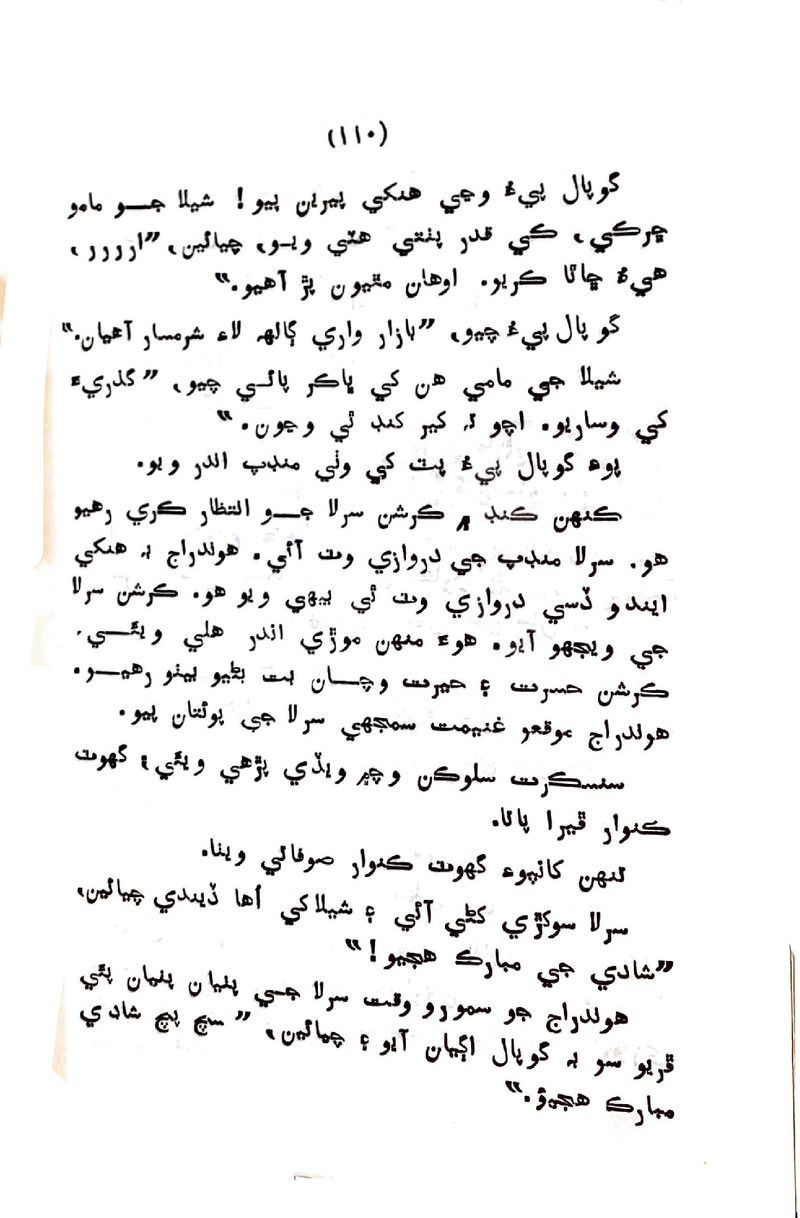 (١١٠)
گوپال پيءُ وڃي هنکي پيرين پيو! شيلا جــو مامو
ڇرڪي، ڪي قدر پنتي هٽي ويـو، چيائين، ”اررر،
هيءُ ڇاٿا ڪريو. اوهان مٿيون پڙ آهيو.“
گوپال پيءُ چيو، ”بازار واري ڳالهہ لاءِ شرمسار آهيان.“
شيلا جي مامي هن کي ڀاڪر پائــي چيو، ”گذريءَ
کي وساريو. اچو تہ کير کنڊ ٿي وڃون.“
پوءِ گوپال پيءُ پٽ کي وٺي منڊپ اندر ويو.
ڪنهن ڪنڊ ۾ ڪرشن سرلا جــو انتظار ڪري رهيو
هو. سرلا منڊپ جي دروازي وٽ آئي. هوندراج بہ هنکي
ايندو ڏسي دروازي وٽ ٿي بيهي ويو هو. ڪرشن سرلا
جي ويجهو آيو. هوءَ منهن موڙي اندر هلي ويئــي.
ڪرشن حسرت ۽ حيرت وچــان بت بڻيو بيٺو رهيــو.
هوندراج موقعو غنيمت سمجهي سرلا جي پوئتان پيو.
سنسڪرت سلوڪن وچ۾ ويڏي پڙهي ويئي ۽ گهوٽ
ڪنوار ڦيرا پاتا.
تنهن کانپوءِ گهوٽ ڪنوار صوفائي ويٺا.
سرلا سوکڙي کڻي آئي ۽ شيلاکي اُها ڏيندي چيائين،
”شادي جي مبارڪ هجيو!“
هوندراج جو سمورو وقت سرلا جــي پٺيان پٺيان پئي
ڦريو سو بہ گوپال اڳيان آيو ۽ چيائين، ”سچ پچ شادي
مبارڪ هجيوَ.“